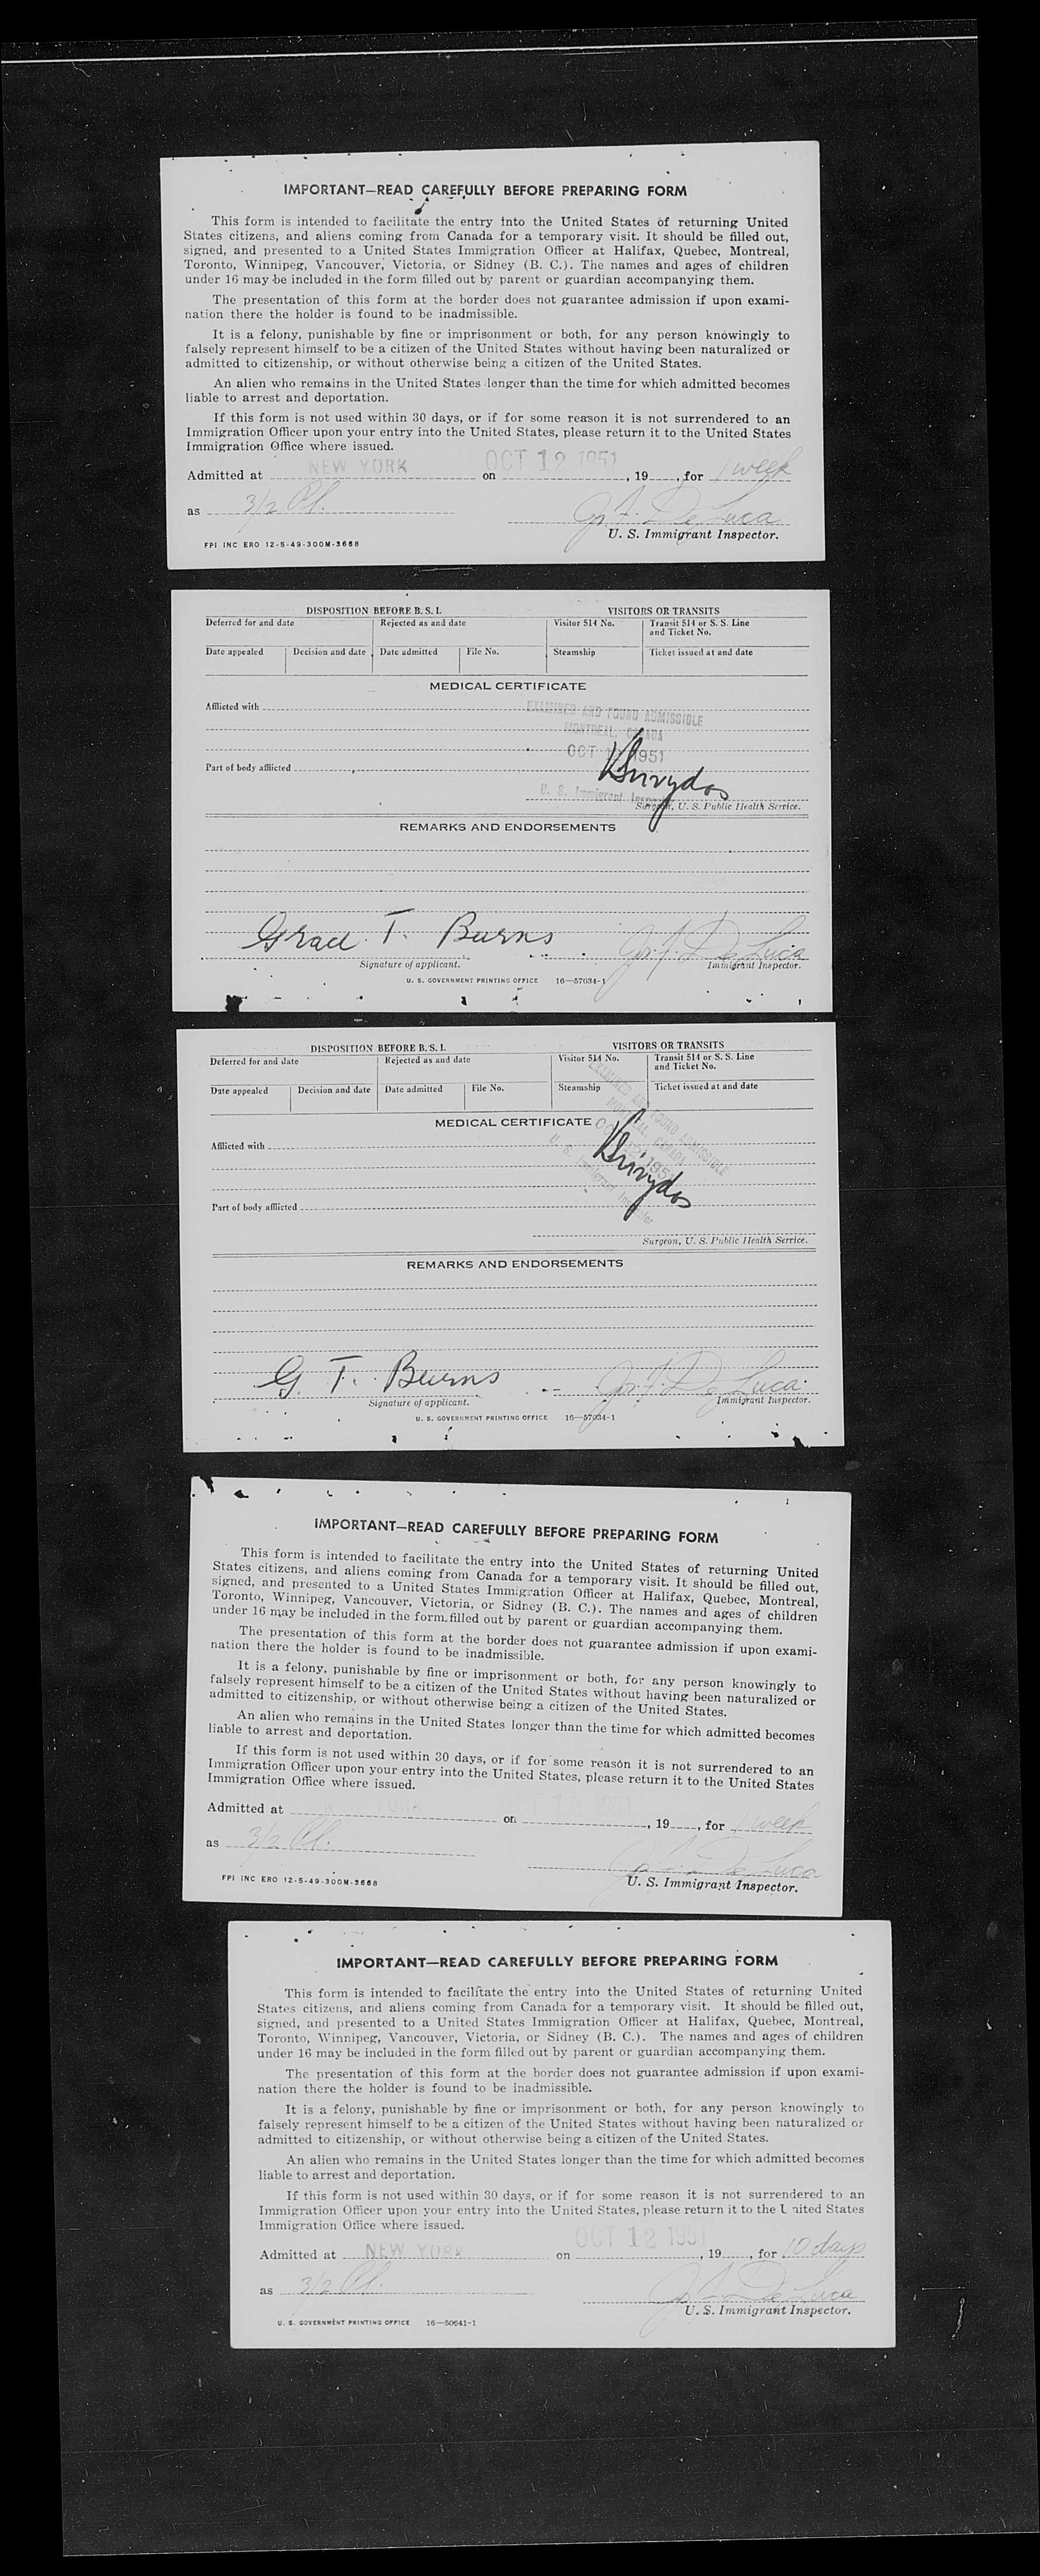 IMPORTANT—READ CAREFULLY BEFORE PREPARING FORM
This form is intended to facilitate the entry into the United States of returning United
States citizens, and aliens coming from Canada for a temporary visit. It should be filled out,
signed, and presented to a United States Immigration Officer at Halifax, Quebec, Montreal,
Toronto, Winnipeg, Vancouver, Victoria, or Sidney (B. C.). The names and ages of children
under 16 may be included in the form filled out by parent or guardian accompanying them.
The presentation of this form at the border does not guarantee admission if upon exami-
nation there the holder is found to be inadmissible.
It is a felony, punishable by fine or imprisonment or both, for any person knowingly to
falsely represent himself to be a citizen of the United States without having been naturalized or
admitted to citizenship, or without otherwise being a citizen of the United States.
An alien who remains in the United States longer than the time for which admitted becomes
liable to arrest and deportation.
If this form is not used within 30 days, or if for some reason it is not surrendered to an
Immigration Officer upon your entry into the United States, please return it to the United States
Immigration Office where issued.
Admitted at NEW YORK on OCT 12 1951, 19, for 1 week
as 3/2 Cl. De Luca
U. S. Immigrant Inspector.
FPI INC ERO 12-5-49-300M-3668
DISPOSITION BEFORE B. S. I. VISITORS OR TRANSITS
Deferred for and date Rejected as and date Visitor 514 No. Transit 514 or S. S. Line
and Ticket No.
Date appealed Decision and date Date admitted File No. Steamship Ticket issued at and date
MEDICAL CERTIFICATE
Afflicted with EXAMINED AND FOUND ADMISSIBLE
MONTREAL, CANADA
OCT 1951
Part of body afflicted
U. S. Immigrant Inspector
Surgeon, U. S. Public Health Service.
REMARKS AND ENDORSEMENTS
Grace T. Burns De Luca
Signature of applicant. Immigrant Inspector.
U. S. GOVERNMENT PRINTING OFFICE 16—57034-1
DISPOSITION BEFORE B. S. I. VISITORS OR TRANSITS
Deferred for and date Rejected as and date Visitor 514 No. Transit 514 or S. S. Line
and Ticket No.
Date appealed Decision and date Date admitted File No. Steamship Ticket issued at and date
EXAMINED AND FOUND ADMISSIBLE
MONTREAL, CANADA
MEDICAL CERTIFICATE
U. S. Immigrant Inspector
Afflicted with
Part of body afflicted
Surgeon, U. S. Public Health Service.
REMARKS AND ENDORSEMENTS
G. T. Burns De Luca
Signature of applicant. Immigrant Inspector.
U. S. GOVERNMENT PRINTING OFFICE 16—57034-1
IMPORTANT—READ CAREFULLY BEFORE PREPARING FORM
This form is intended to facilitate the entry into the United States of returning United
States citizens, and aliens coming from Canada for a temporary visit. It should be filled out,
signed, and presented to a United States Immigration Officer at Halifax, Quebec, Montreal,
Toronto, Winnipeg, Vancouver, Victoria, or Sidney (B. C.). The names and ages of children
under 16 may be included in the form filled out by parent or guardian accompanying them.
The presentation of this form at the border does not guarantee admission if upon exami-
nation there the holder is found to be inadmissible.
It is a felony, punishable by fine or imprisonment or both, for any person knowingly to
falsely represent himself to be a citizen of the United States without having been naturalized or
admitted to citizenship, or without otherwise being a citizen of the United States.
An alien who remains in the United States longer than the time for which admitted becomes
liable to arrest and deportation.
If this form is not used within 30 days, or if for some reason it is not surrendered to an
Immigration Officer upon your entry into the United States, please return it to the United States
Immigration Office where issued.
Admitted at on 12 1951, 19, for week
as 3/2 Cl. De Luca
U. S. Immigrant Inspector.
FPI INC ERO 12-5-49-300M-3668
IMPORTANT—READ CAREFULLY BEFORE PREPARING FORM
This form is intended to facilitate the entry into the United States of returning United
States citizens, and aliens coming from Canada for a temporary visit. It should be filled out,
signed, and presented to a United States Immigration Officer at Halifax, Quebec, Montreal,
Toronto, Winnipeg, Vancouver, Victoria, or Sidney (B. C.). The names and ages of children
under 16 may be included in the form filled out by parent or guardian accompanying them.
The presentation of this form at the border does not guarantee admission if upon exami-
nation there the holder is found to be inadmissible.
It is a felony, punishable by fine or imprisonment or both, for any person knowingly to
falsely represent himself to be a citizen of the United States without having been naturalized or
admitted to citizenship, or without otherwise being a citizen of the United States.
An alien who remains in the United States longer than the time for which admitted becomes
liable to arrest and deportation.
If this form is not used within 30 days, or if for some reason it is not surrendered to an
Immigration Officer upon your entry into the United States, please return it to the United States
Immigration Office where issued.
Admitted at NEW YORK on OCT 12 1951, 19, for 10 days
as 3/2 Cl. De Luca
U. S. Immigrant Inspector.
U. S. GOVERNMENT PRINTING OFFICE 16—50641-1